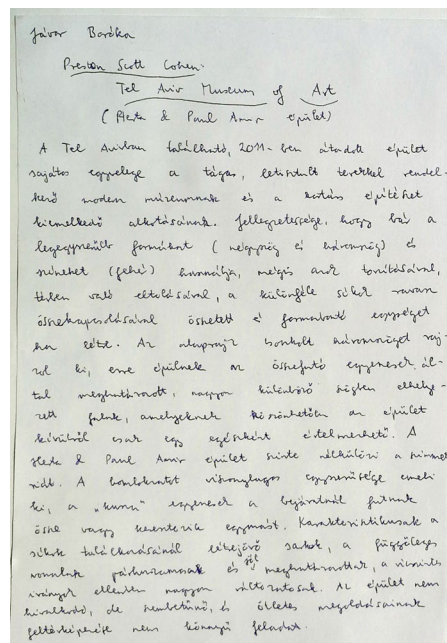 Jávor Baróka
Preston Scott Cohen:
Tel Aviv Museum of Art
(Herta & Paul Amir épület)
A Tel Avivban található, 2011-ben átadott épület
sajátos egyvelege a tágas, letisztult terekkel rendel-
kező modern múzeumnak és a kortárs építészet
kiemelkedő alkotásainak. Jellegzetessége, hogy bár a
legegyszerűbb formákat (négyszög és háromszög) és
színeket (fehér) használja, mégis azok torzításával,
térben való eltolásával, a különféle síkok ravasz
összekapcsolásával összetett és formabontó egységet
hoz létre. Az alaprajz csonkolt háromszöget raj-
zol ki, erre épülnek az összefutó egyenesek ál-
tal meghatározott, nagyon különböző szögben elhelye-
zett falak, amelyeknek köszönhetően az épület
kívülről csak egy egészként értelmezhető. A
Herta & Paul Amir épület szinte nélkülözi a szimmet-
riát. A homlokzatot viszonylagos egyszerűsége emeli
ki, a „hosszú” egyenesek a bejáratnál futnak
össze vagy keresztezik egymást. Karakterisztikusak a
síkok találkozásánál létrejövő sarkok, a függőleges
vonalak párhuzamosak és jól meghatározottak, a vízszintes
irányok ellenben nagyon változatosak. Az épület nem
hivalkodó, de szembetűnő, és ötletes megoldásainak
feltérképezése nem könnyű feladat.